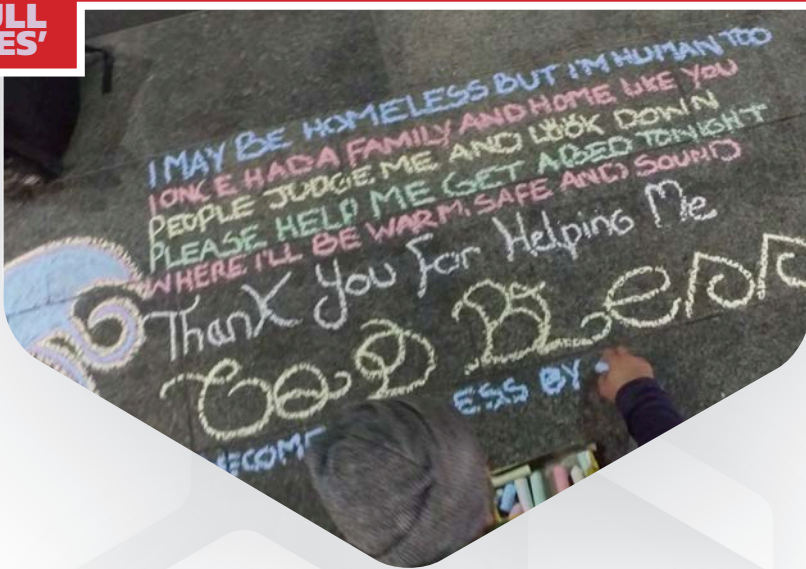 ULL
ES'
I MAY BE HOMELESS BUT I'M HUMAN TOO
I ONCE HAD A FAMILY AND HOME LIKE YOU
PEOPLE JUDGE ME AND LOOK DOWN
PLEASE HELP ME GET A BED TONIGHT
WHERE I'LL BE WARM, SAFE AND SOUND
Thank You For Helping Me
GOD BLESS
ECOME ESS BY